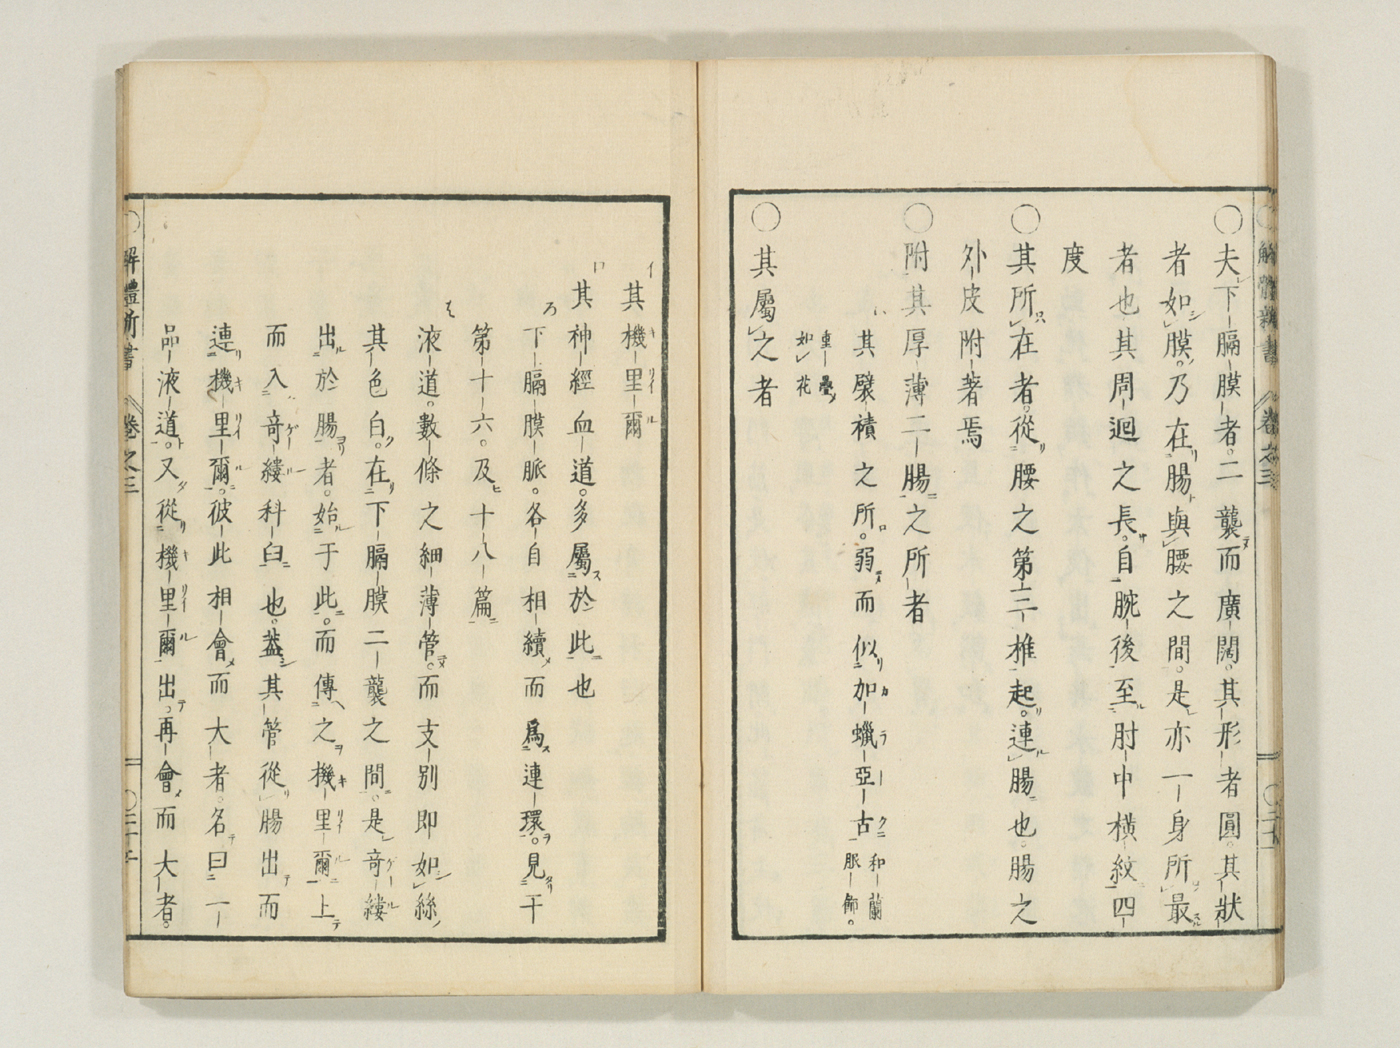 解體新書 卷之三
○夫下膈膜者。二襲而廣闊。其形者圓。其狀
者如膜。乃在腸與腰之間。是亦一身所最
者也其周迴之長。自腕後至肘中橫紋四
度
○其所在者。從腰之第三椎起。連腸也。腸之
外皮附著焉
○附其厚薄二腸之所者
ハ其襞積之所。弱而似加蠟亞古和蘭服飾。
重疊如花
○其屬之者
イ其機里爾
ロ其神經血道。多屬於此也
ろ下膈膜脈。各自相續而爲連環。見于
第十六。及十八篇
液道。數條之細薄管。而支別即如絲
其色白。在下膈膜二襲之間。是奇縷
出於腸者。始于此。而傳之機里爾上
而入奇縷科臼也。蓋其管從腸出而
連機里爾。彼此相會而大者。名曰一
品液道。又從機里爾出。再會而大者。
解體新書 卷之三